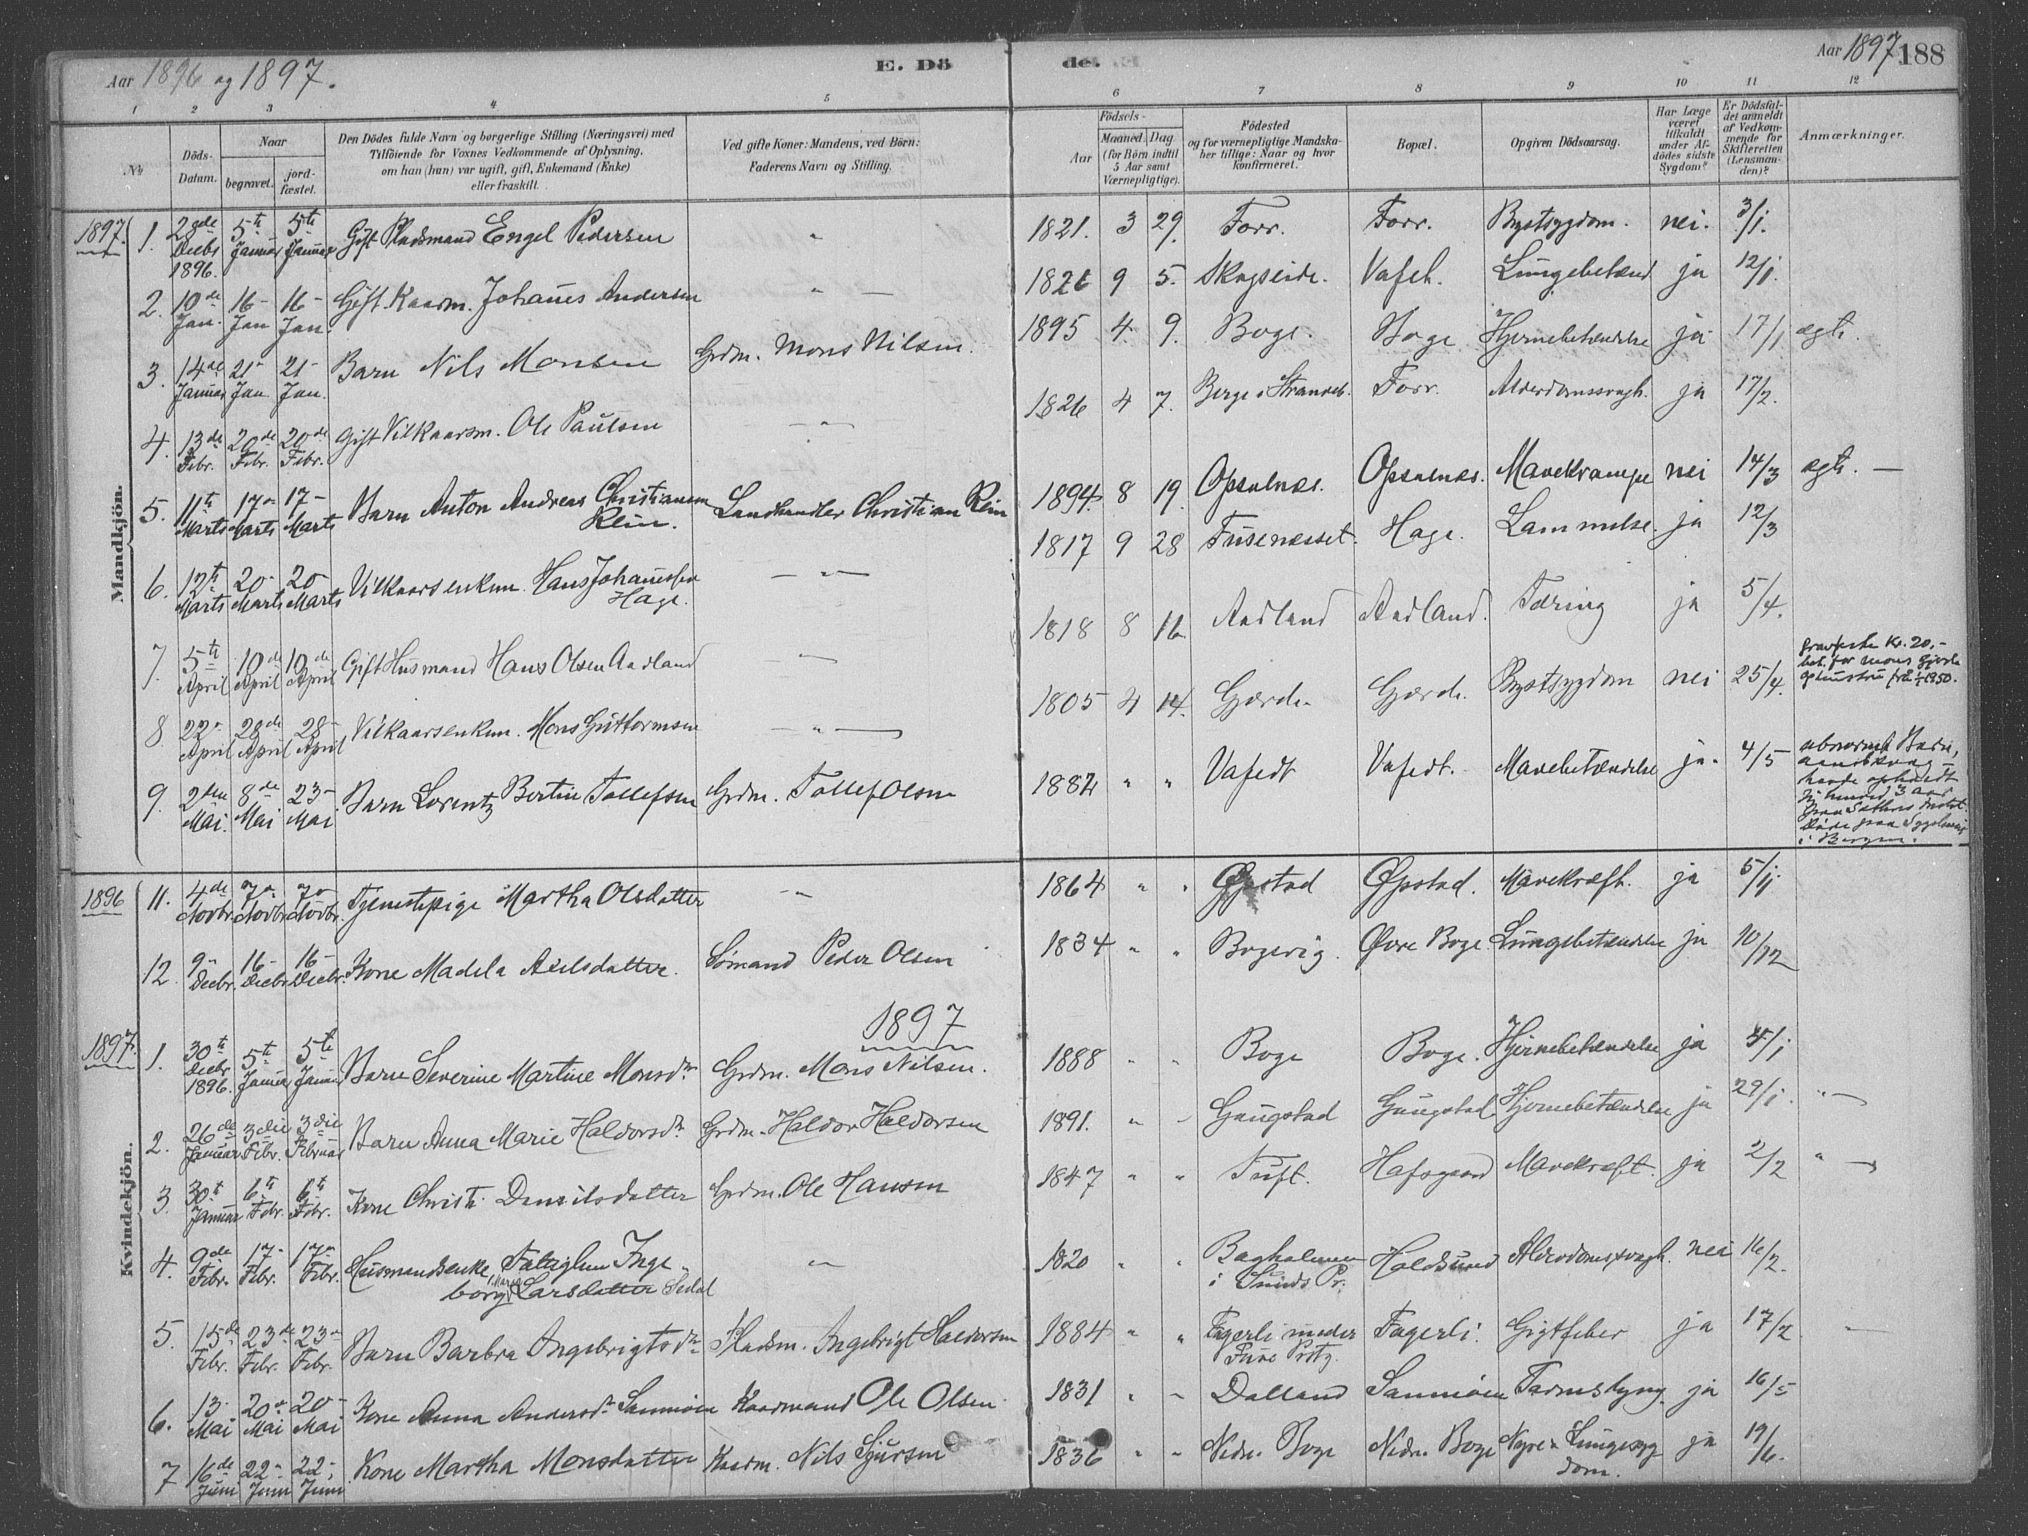 Aar 1896 og 1897.
E. Dö
de. E.
Aar 1897
188
1 2 3 4 5 6 7 8 9 10 11 12
No
Döds-Datum.
Naar
begravet.
jordfæstet.
Den Dödes fulde Navn og borgerlige Stilling (Næringsvei) med
Tilföiende for Voxnes Vedkommende af Oplysning,
om han (hun) var ugift, gift, Enkemand (Enke)
eller fraskilt.
Ved gifte Koner: Mandens, ved Börn:
Faderens Navn og Stilling.
Födsels-
Aar
Maaned. Dag.
(for Börn indtil
5 Aar samt
Værnepligtige).
Födested
og for værnepligtige Mandska-
ber tillige: Naar og hvor
konfirmeret.
Bopæl.
Opgiven Dödsaarsag.
Har Læge
været
tilkaldt
under Af-
dödes sidste
Sygdom?
Er Dödsfal-
det anmeldt
af Vedkom-
mende for
Skifteretten
(Lensman-
den)?
Anmærkninger.
Mandkjön.
1897. 1. 28de Decbr 1896. 5te Januar 5te Januar Gift Pladsmand Engel Pedersen " 1821. 3 29. Forr. Forr. Brystsygdom. nei. 3/1.
2. 10de Jan. 16- Jan 16- Jan. Gift. Kaarm. Johanes Andersen " 1826 9 5. Skagseide. Vafet. Lungebetænd ja 12/1.
3. 14de Januar 21- Jan 21- Jan. Barn Nils Monsen Grdm. Mons Nilsen. 1895 4. 9. Boge. Boge Hjernebetændelse ja 17/1 ægte.
4. 13de Febr. 20de Febr. 20de Febr. Gift Vilkaarsm. Ole Paulsen " 1826 4 7. Berge i Strandeb. Forr. Alderdomssvagh. ja 17/2.
5. 11te Marts 17- Marts 17- Marts Barn Anton Andreas Christiansen Rein. Landhandler Christian Rein 1894. 8 19. Opsalnæs. Opsalnæs. Mavekrampe nei 14/3 ægte.
6. 12te Marts 20- Marts 20- Marts Vilkaarsenkem. Hans Johannessen Hage. " 1817 9 28 Fusenesset. Hage. Lammelse. ja 12/3
7. 5te April 10de April 10de April Gift Husmand Hans Olsen Aadland " 1818 8 16 Aadland Aadland. Tæring ja 5/4.
8. 22- April 28de April 28- April Vilkaarsenkem. Mons Guttormsen " 1805 4 14. Gjærde. Gjærde. Brystsygdom nei 25/4. Gravfeste Kr. 20,- bet. for Mons Gjerde
9. 2den Mai. 8de Mai 23- Mai Barn Lorentz Bertin Tollefsen Grdm. Tollef Olsen 1882 " " Vafedt Vafedt. Mavebetændelse ja. 4/5 abnormt Barn,
i Bergen.
Kvindekjön.
1896 11. 4de Novbr. 7- Novbr. 7- Novbr. Tjenestepige Martha Olsdatter " 1864 " " Øpstad Øpstad. Mavekræft. ja 5/11
12. 9- Decbr. 16- Decbr 16- Decbr. Kone Madela Axelsdatter. Sømand Peder Olsen 1834 " " Bogevig. Øvre Boge Lungebetændelse ja 10/12
1897
1897. 1. 30te Decbr 1896. 5te Januar 5te Januar Barn Severine Martine Monsdtr Grdm. Mons Nilsen. 1888 " " Boge Boge. Hjernebetændelse ja 4/1
2. 26de Januar 3die Febr. 3die Februar Barn Anna Marie Haldorsdtr Grdm. Haldor Haldorsen 1891. " " Gaugstad Gaugstad Hjernebetændelse ja 29/1. "
3. 30te Januar 6te Febr. 6te Febr. Kone Christi Danielsdatter Grdm. Ole Hansen 1847 " " Tuft. Hafsgaard Mavekræft. ja 2/2 "
4. 9de Febr. 17- Febr. 17- Febr. Husmandsenke, Fattiglem Ingeborg Marie Larsdatter " 1820 " " Bagholmen i Sunds Pr. Holdsund Alderdomssvagh. nei 16/2.
5. 15de Febr. 23de Febr. 23- Febr. Barn Barbra Angebrigtsdtr Pladsm. Ingebrigt Haldorsen 1884 " " Fagerli under Fuse Prstg. Fagerli. Gigtfeber ja 17/2
6. 13. Mai 20- Mai 20- Mai Kone Anna Andersdtr Samnøen Kaarmand Ole Olsen. 1831 " " Dalland Samnøen Tarmslyng ja 16/5
7 16de Juni 22- Juni 22- Juni Kone Martha Monsdatter Kaarm. Nils Sjursen 1836 " " Nedre Boge Nedre Boge Nyre & Lungesygdom. ja 19/6.